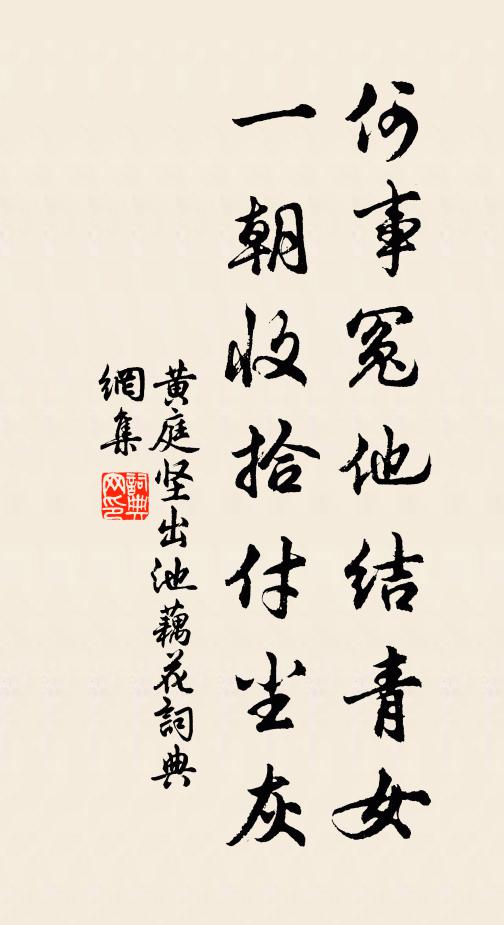 何事冤他结青女
一朝收拾付尘灰
黄庭坚出池藕花詞典
網集
詞典
网印